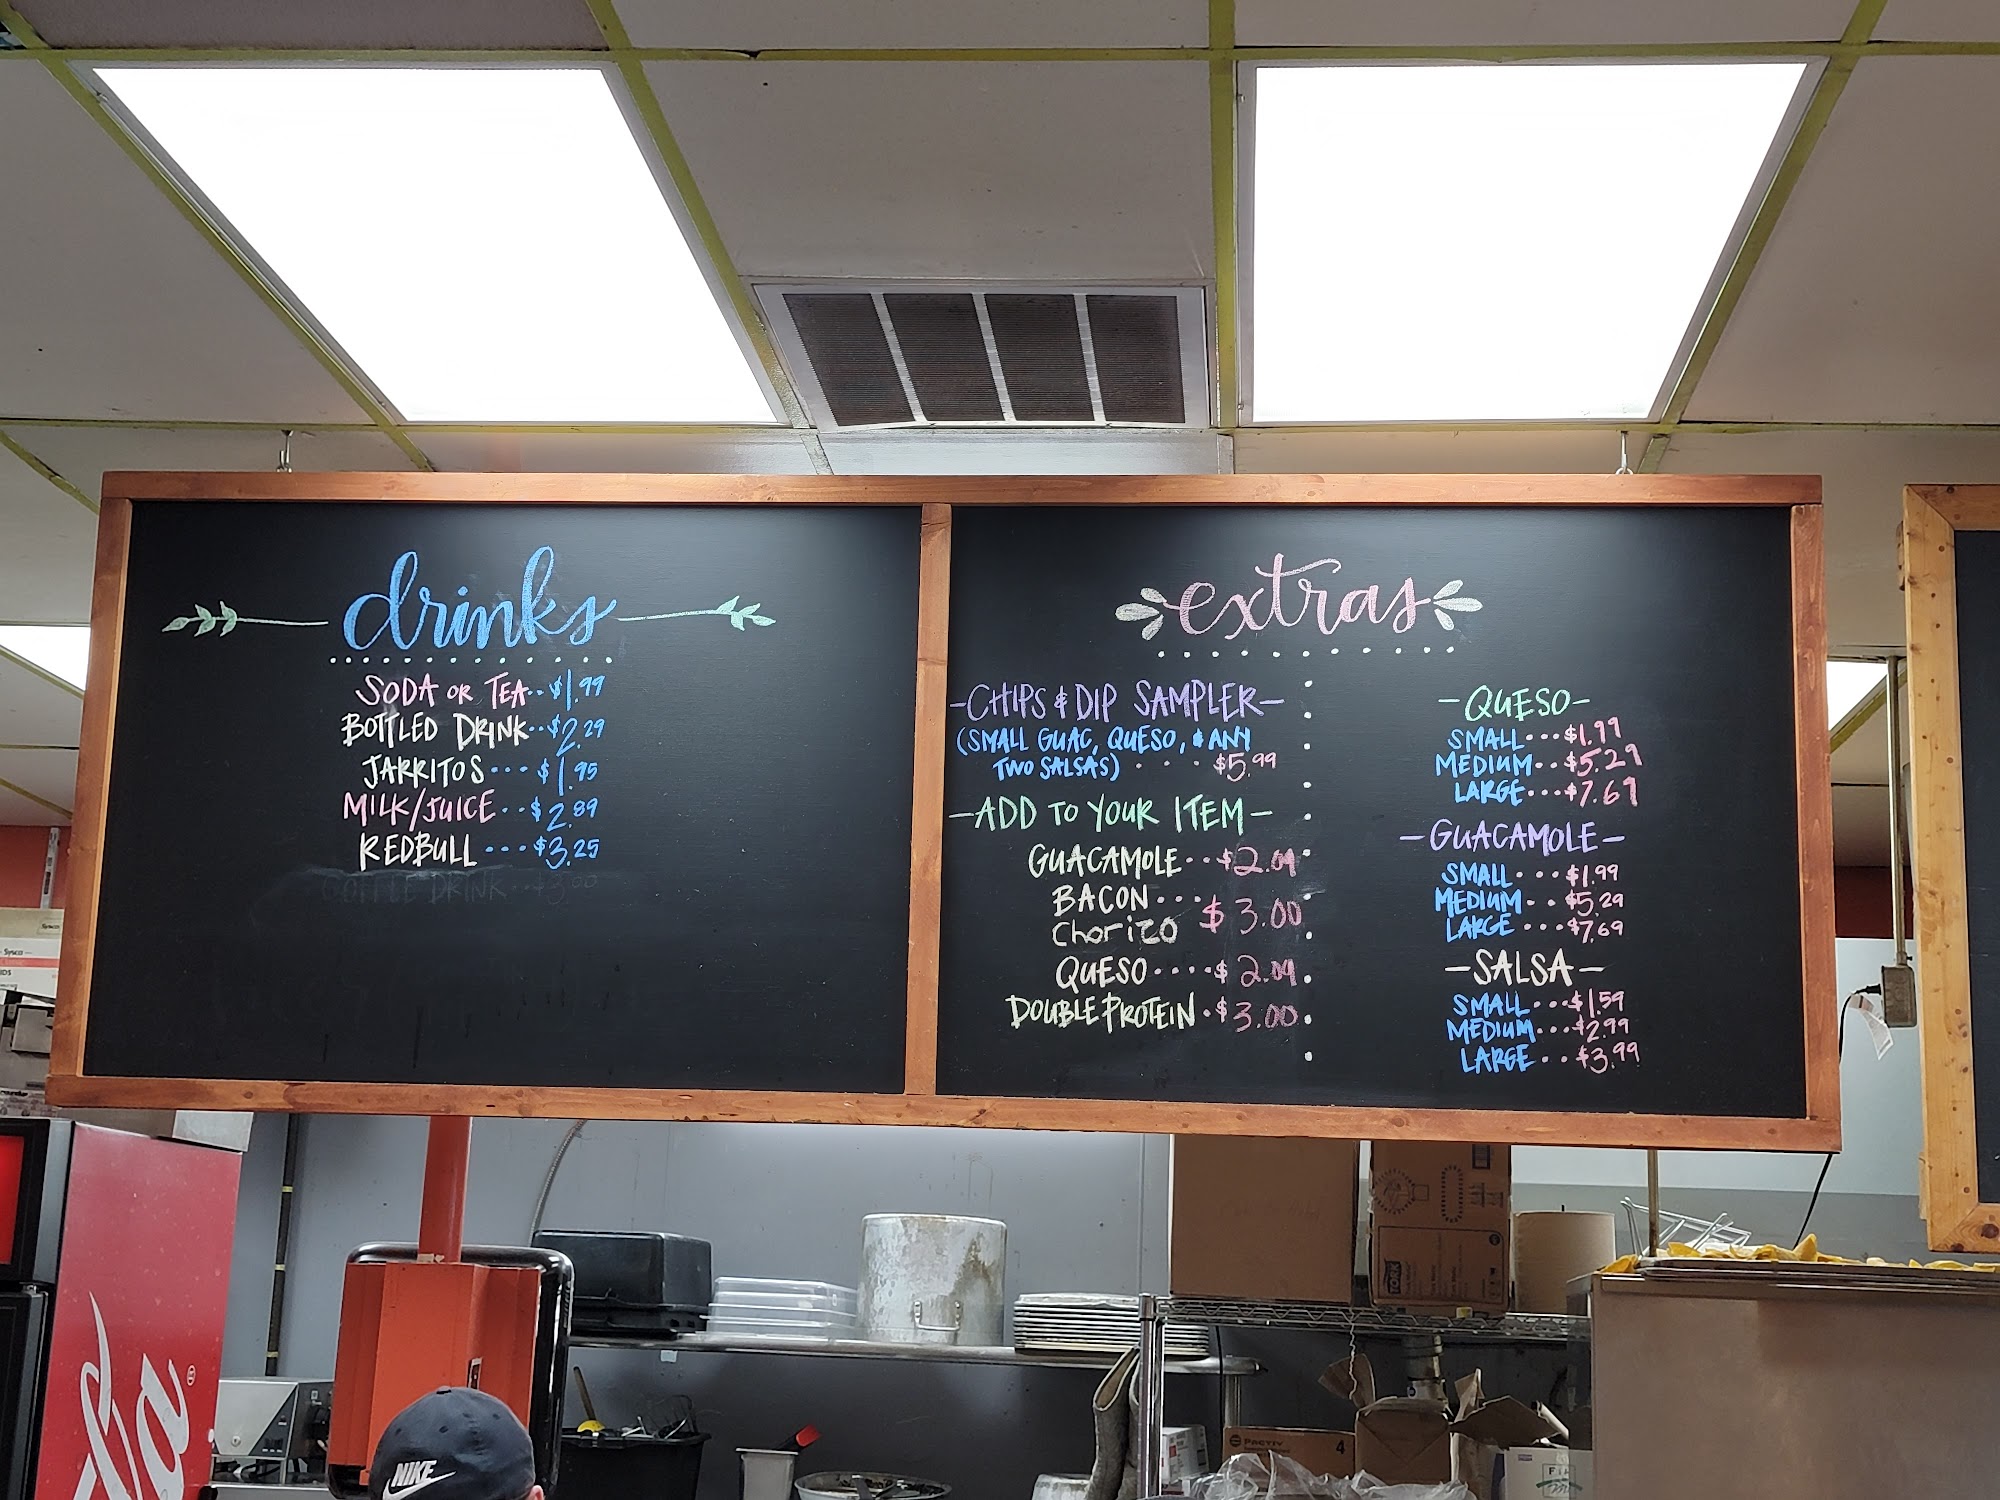 drinks
SODA OR TEA..$1.99
BOTTLED DRINK..$2.29
JARRITOS...$1.95
MILK/JUICE..$2.89
REDBULL...$3.25
COFFEE DRINK..$3.00
extras
-CHIPS & DIP SAMPLER-
(SMALL GUAC, QUESO, & ANY
TWO SALSAS) . . . $5.99
-ADD TO YOUR ITEM-
GUACAMOLE..$2.09
BACON...$3.00
Chorizo
QUESO....$2.09
DOUBLE PROTEIN.$3.00
-QUESO-
SMALL...$1.99
MEDIUM..$5.29
LARGE...$7.69
-GUACAMOLE-
SMALL...$1.99
MEDIUM..$5.29
LARGE...$7.69
-SALSA-
SMALL...$1.59
MEDIUM...$2.99
LARGE..$3.99
Sysco
Sysco
Classic
TORK
NIKE
PACTIV 4